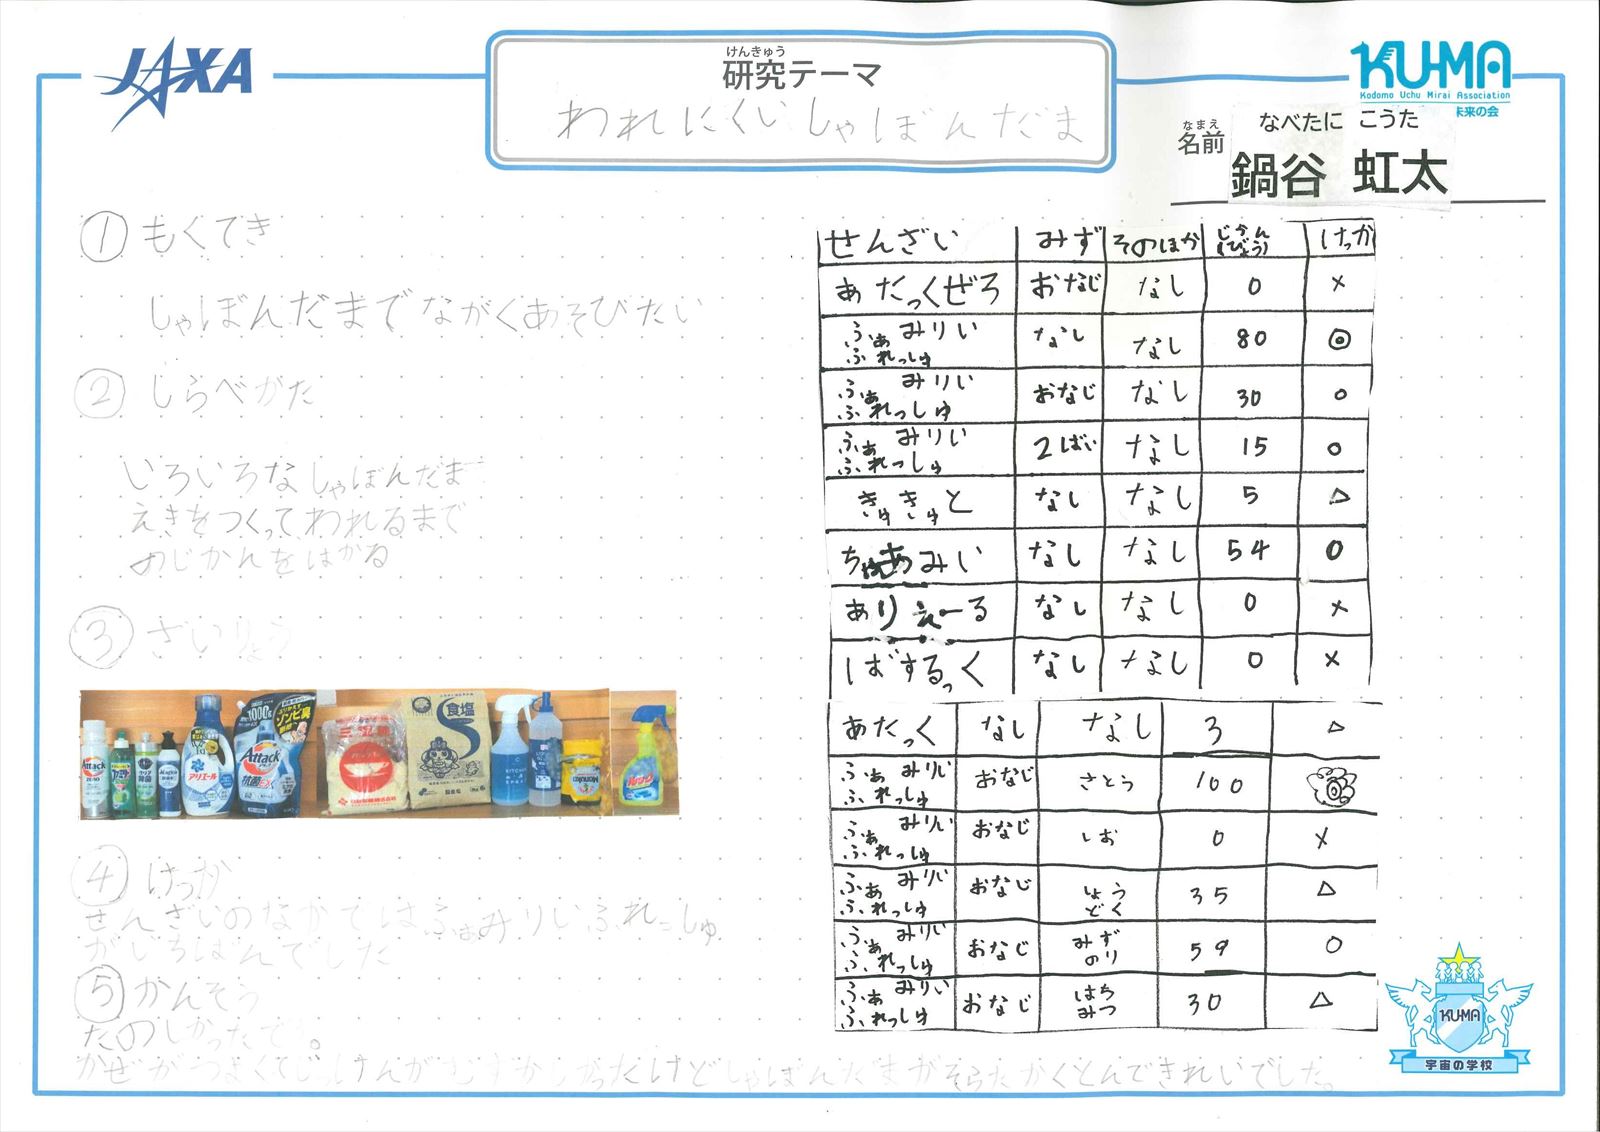 JAXA
けんきゅう
研究テーマ
われにくいしゃぼんだま
KU-MA
Kodomo Uchu Mirai Association
未来の会
なまえ
名前
なべたに こうた
鍋谷 虹太
① もくてき
しゃぼんだまでながくあそびたい
② しらべかた
いろいろなしゃぼんだま
えきをつくってわれるまで
のじかんをはかる
③ ざいりょう
Attack ZERO
アリエール
1000g
ゾンビ臭
Attack
抗菌EX
食塩
④ けっか
せんざいのなかではふぁみりいふれっしゅ
がいちばんでした
⑤ かんそう
たのしかったです。
かぜがつよくてじっけんがむずかしかったけどしゃぼんだまがそらたかくとんできれいでした。
せんざい みず そのほか じかん(びょう) けっか
あたっくぜろ おなじ なし 0 ×
ふぁみりいふれっしゅ なし なし 80 ◎
ふぁみりいふれっしゅ おなじ なし 30 ○
ふぁみりいふれっしゅ 2ばい なし 15 ○
きゅきゅと なし なし 5 △
ちゃあみい なし なし 54 ○
ありえーる なし なし 0 ×
ばするっく なし なし 0 ×
あたっく なし なし 3 △
ふぁみりいふれっしゅ おなじ さとう 100
ふぁみりいふれっしゅ おなじ しお 0 ×
ふぁみりいふれっしゅ おなじ しょうどく 35 △
ふぁみりいふれっしゅ おなじ みずのり 59 ○
ふぁみりいふれっしゅ おなじ はちみつ 30 △
KU-MA
宇宙の学校